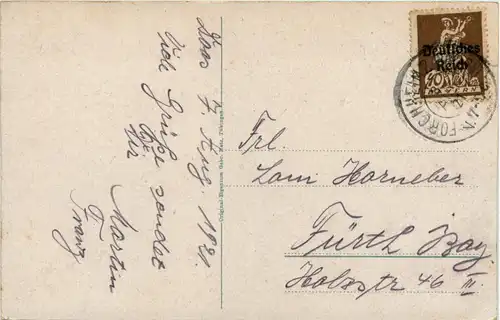 Aug. 1921.
Viele Grüße sendet
Dir
Martin
Franz
Original-Eigentum Gebr. Metz, Tübingen.
Deutsches
Reich
BAYERN
FORCHHEIM
Frl.
Horneber
Fürth Bay.
Holzstr 46 III.